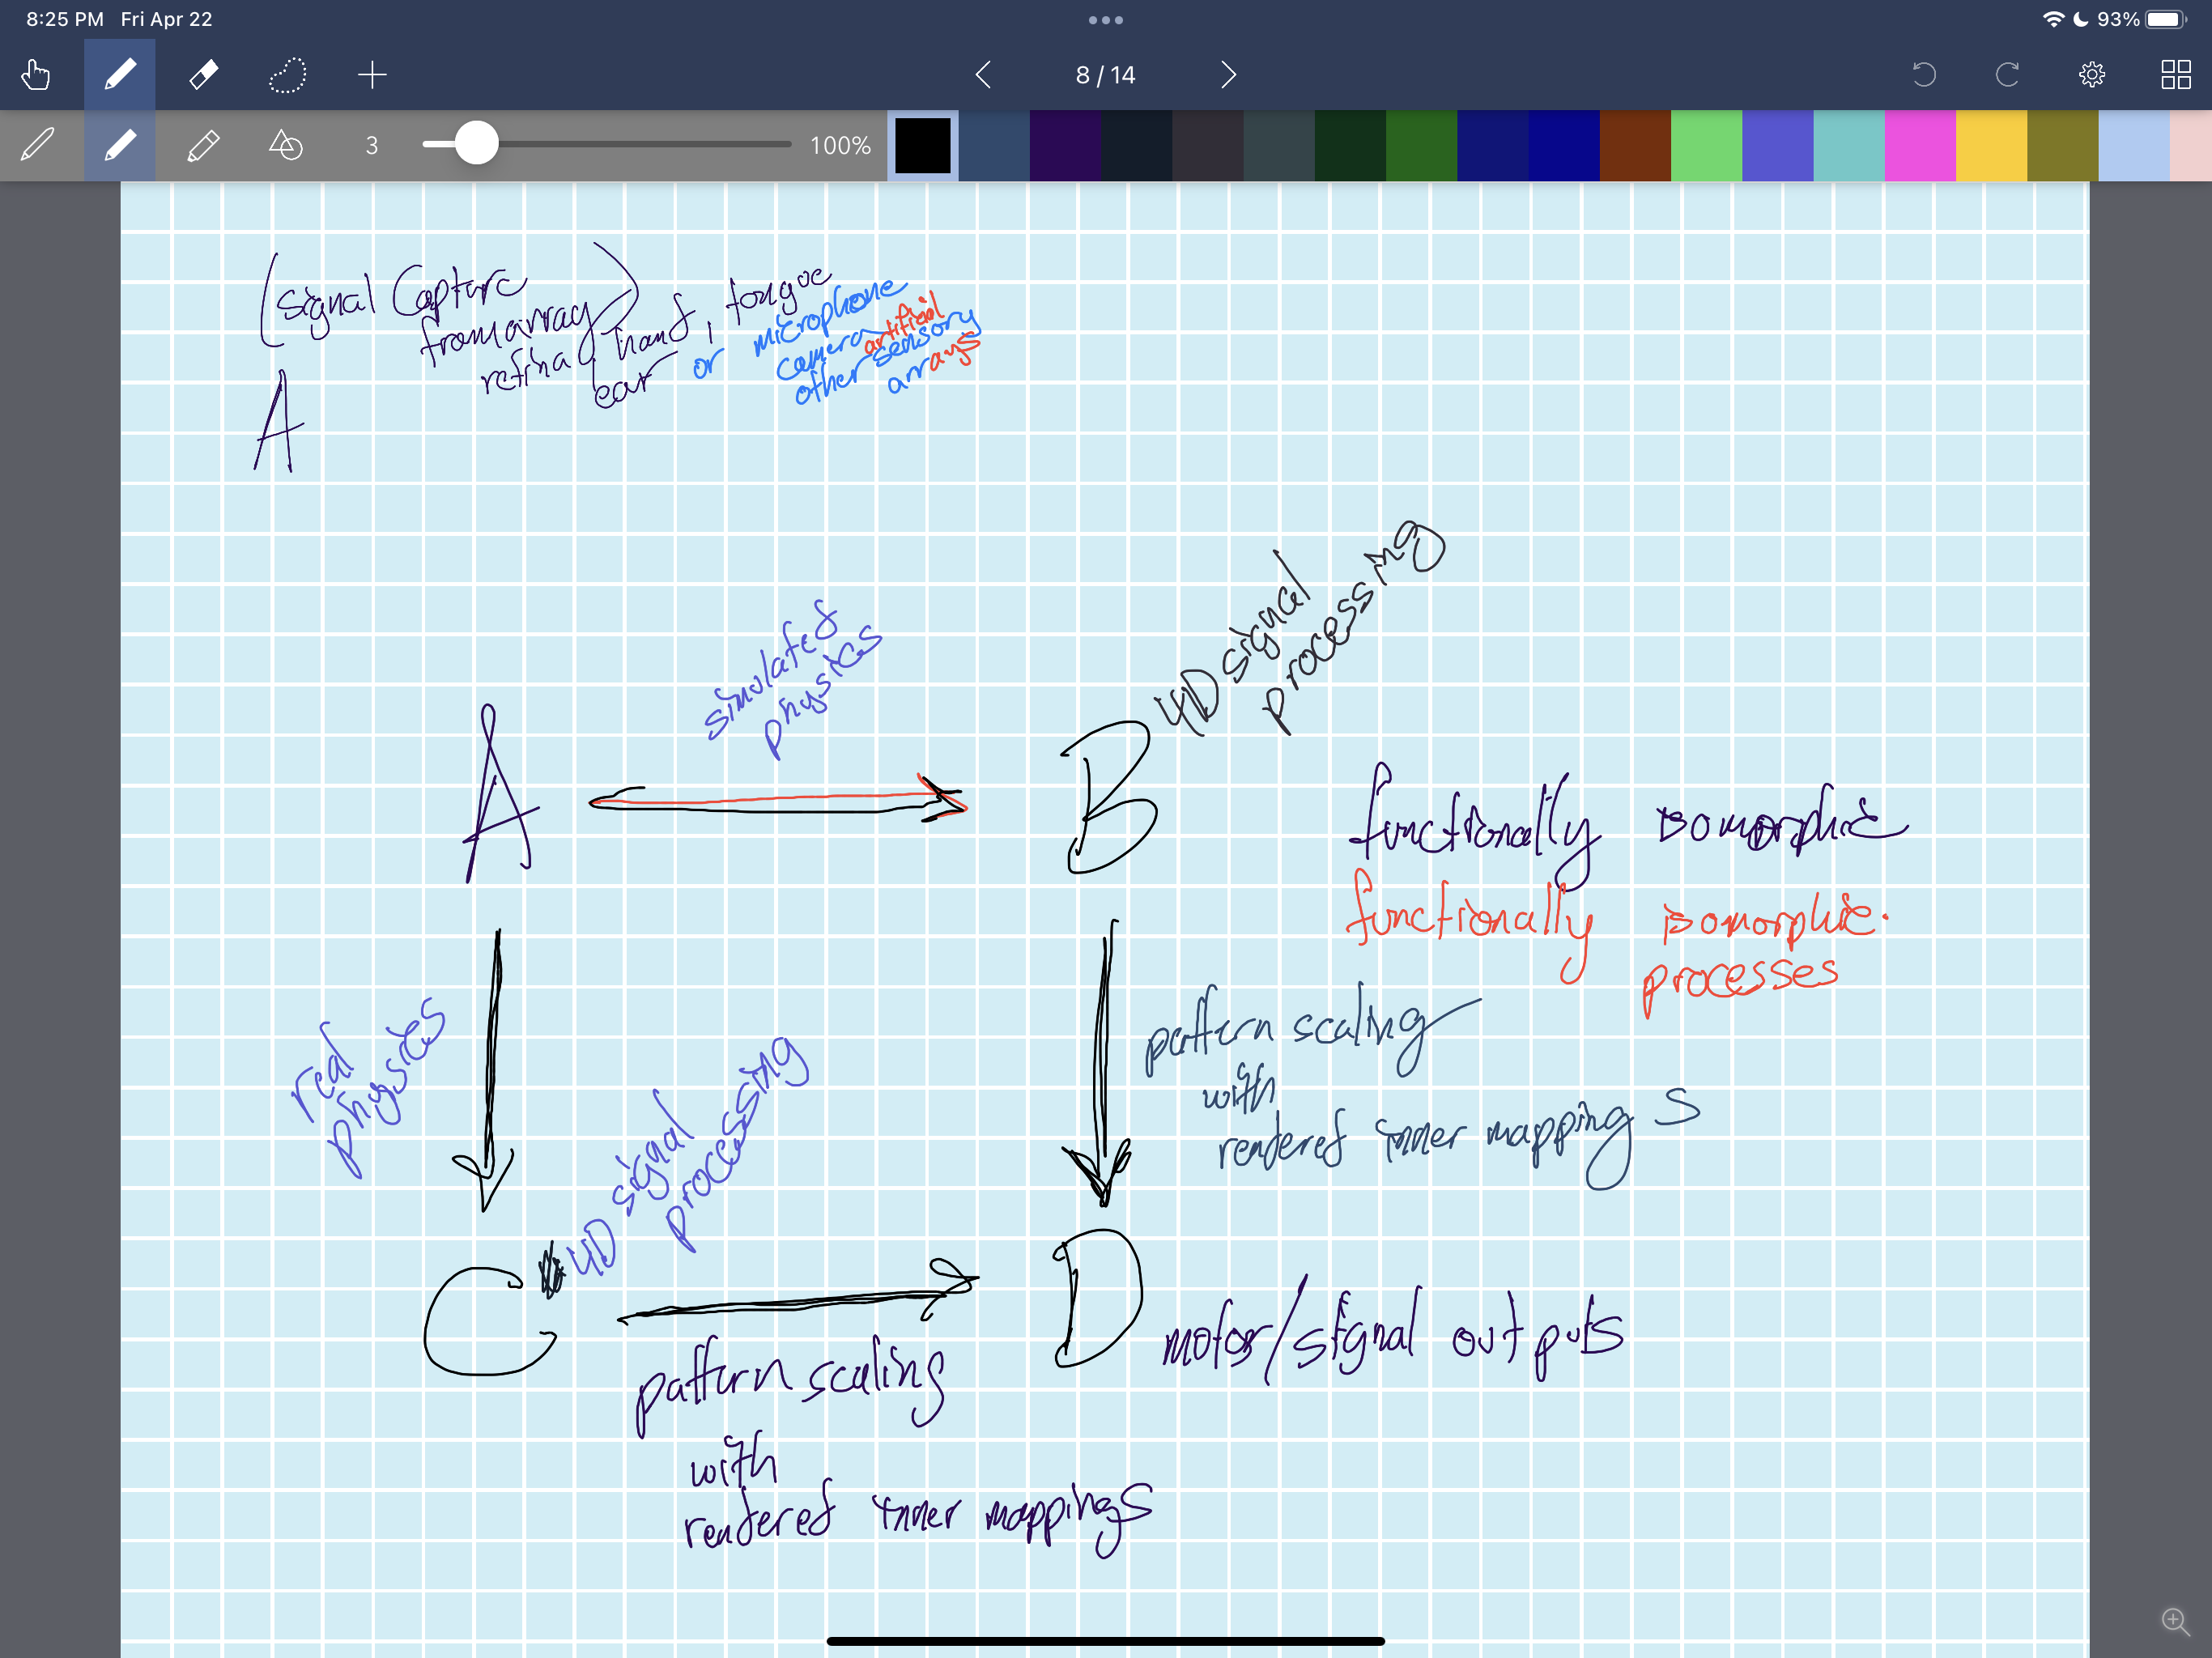 8:25 PM Fri Apr 22
93%
8 / 14
3
100%
(Signal Capture
from array)
retina, hand, tongue
ear
or microphone
camera artificial
other sensory
arrays
A
simulated
physics
4D signal
processing
A
B
functionally isomorphic
functionally isomorphic
processes
real
physics
pattern scaling
with
rendered inner mappings
4D signal
processing
C
D
motor/signal outputs
pattern scaling
with
rendered inner mappings